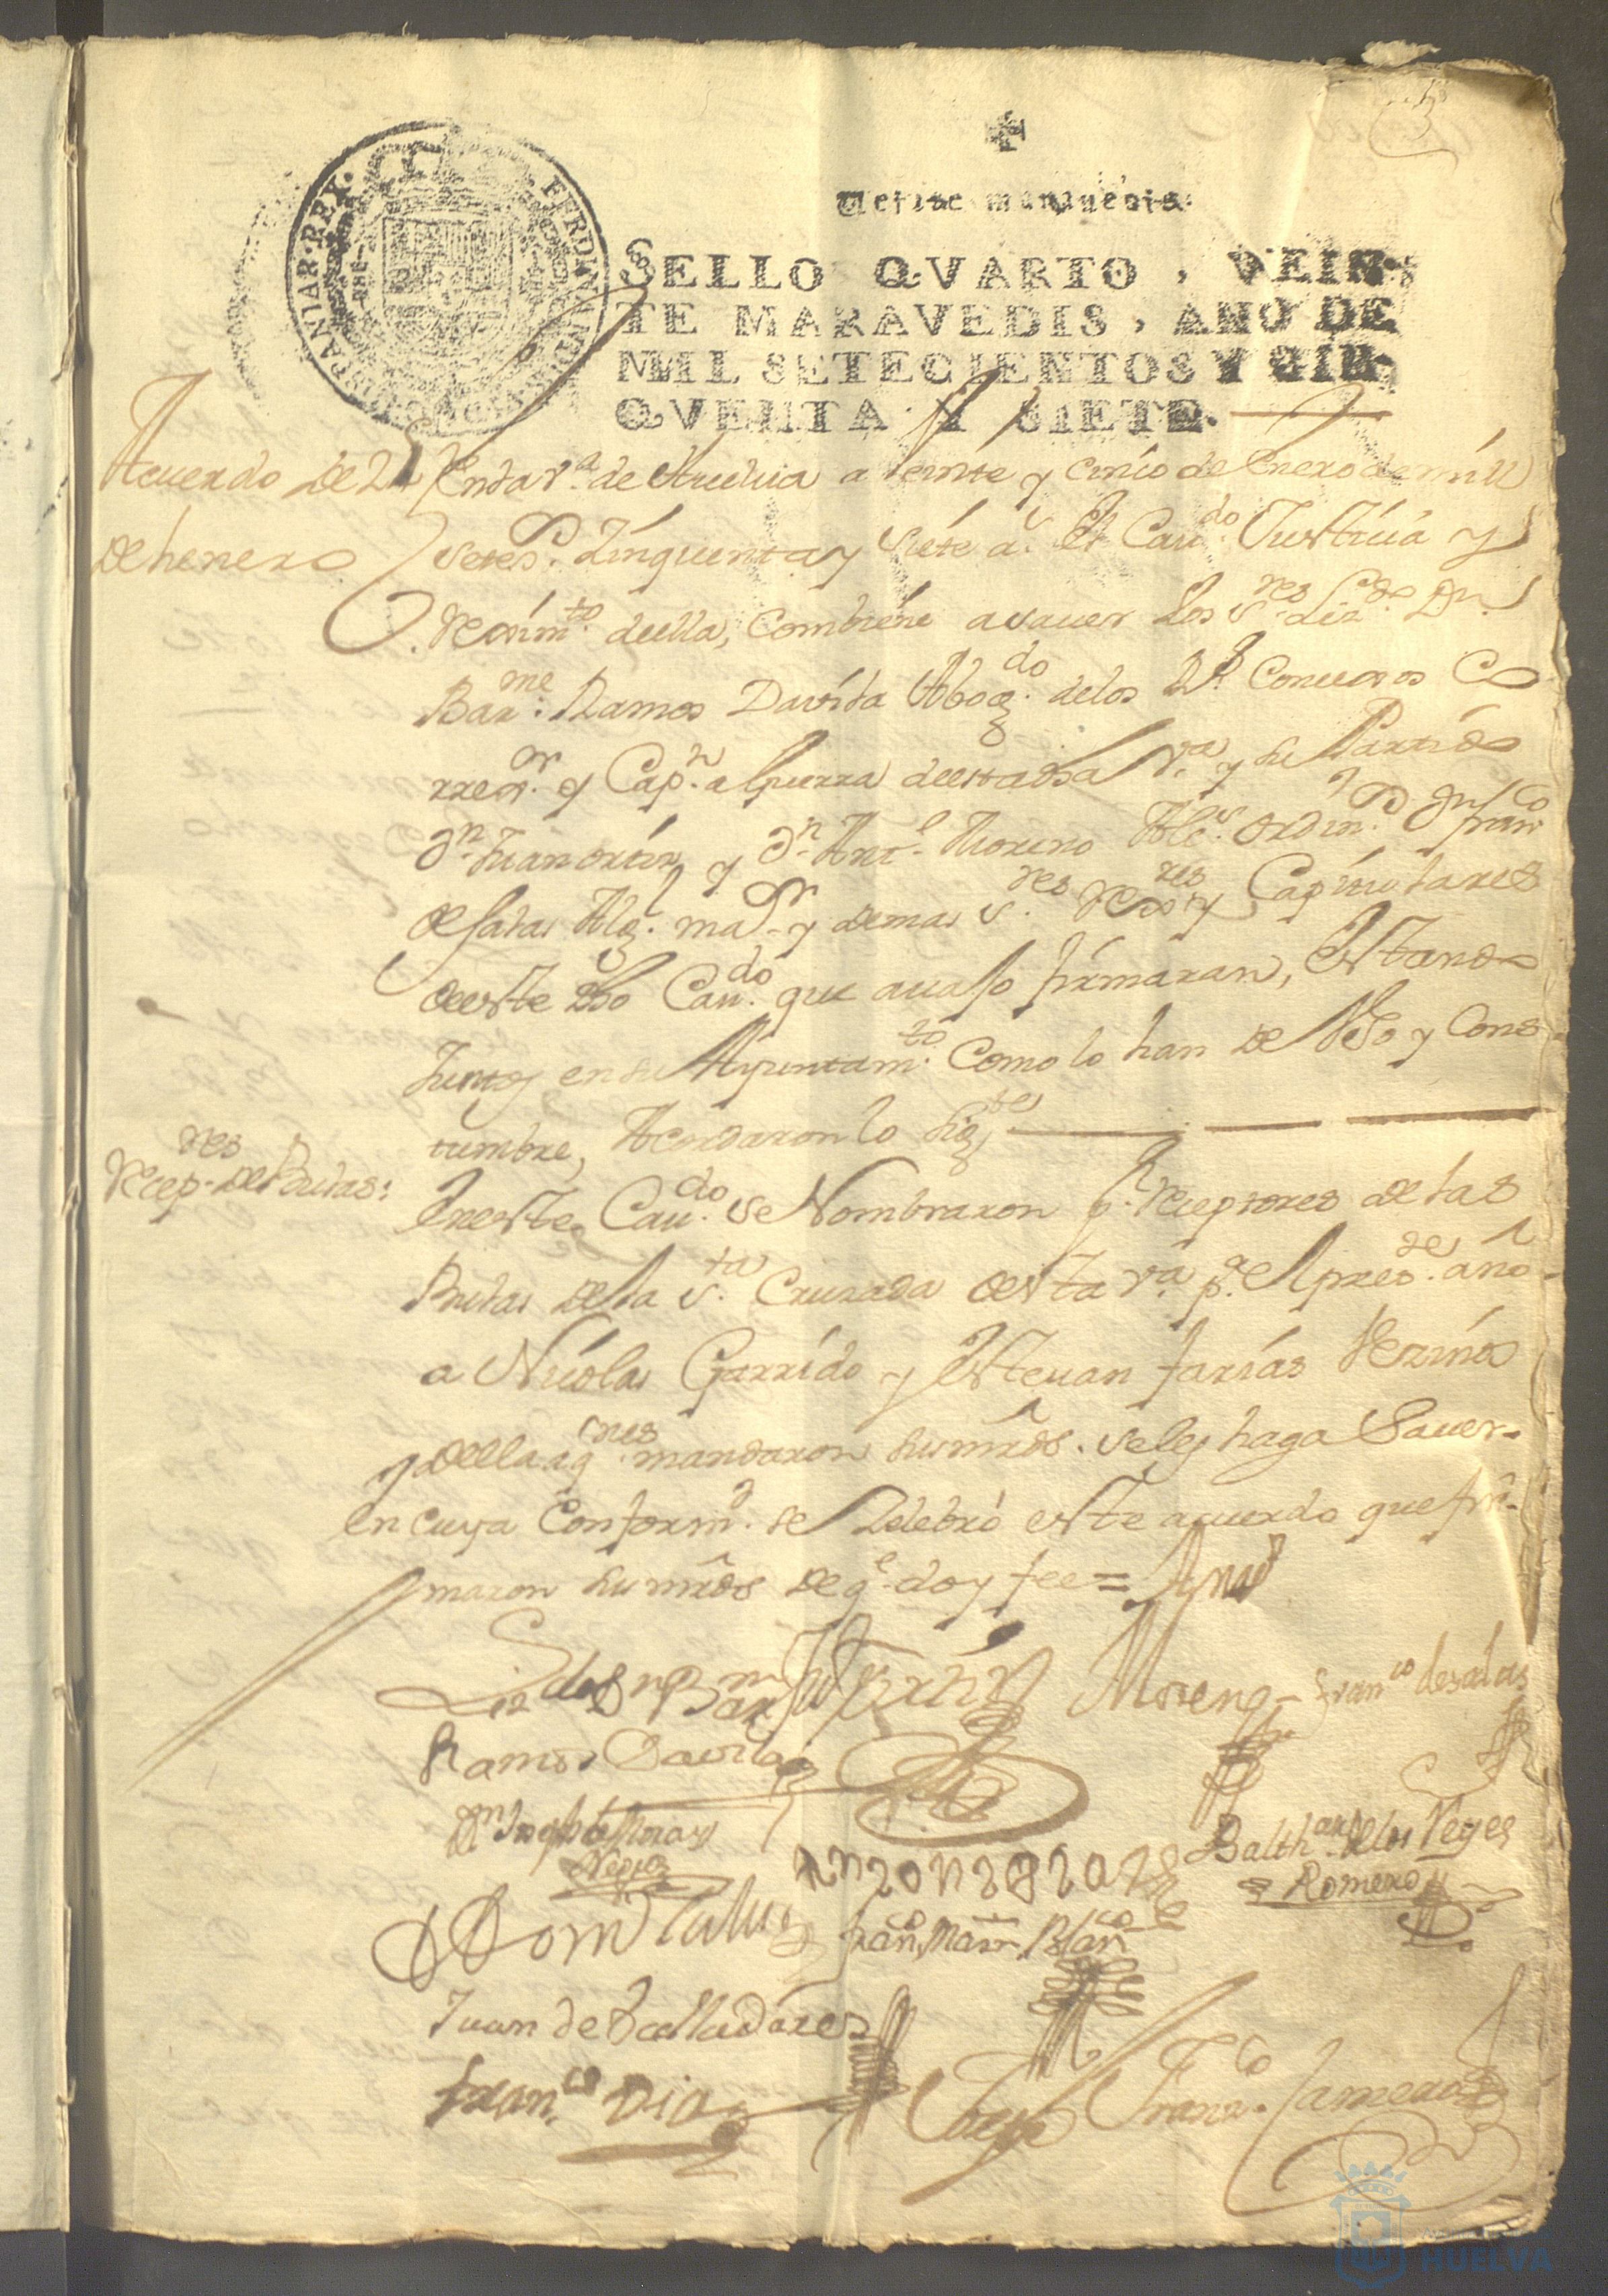 3
Veinte maravedis.
SELLO QVARTO, VEIN-
TE MARAVEDIS, AÑO DE
MIL SETECIENTOS Y CIN-
QVENTA Y SIETE.
HISPANIAR·REX· FERDINANDVS
Acuerdo de 25
de henero
En la v.ª de Huelva a veinte y cinco de Enero de mill
setes.s Zinquenta y siete a.s El Cau.do Justicia y
Reximto. della, combiene a sauer los S.res Liz.do Dn.
Barme. Ramos Davila Abog.do de los R.s Consexos Co
rreg.or y Cap.n a Guerra de esta dha V.ª y su Partido
Dn. Juan Ortiz y Dn. Ant.º Moreno Alc.s Ordin.s Dn. Franco
de Salas Alg. maor. y demas S.res Rexres y Capitulares
de este dho Cau.do que auajo firmaran, Estando
Juntos en su Ayuntamto. Como lo han de Uso y Cons
tumbre, Acordaron lo sigte
Recepres de Bulas:
En este Cau.do se Nombraron p.r Receptores de las
Bulas de la S.ta Cruzada de esta v.ª p.ª El presde. año
a Nicolas Garrido y Esteuan farias Vezinos
della a q.nes mandaron sus mrds. se les haga Sauer.
en cuya Conformd. se Zelebró este acuerdo que fir-
maron sus mrds de q.e doy fee =
Lizdo Dn Barme
Ramos Davila
Ju Ortiz
Moreno
Franco de salas
Balthar de los Reyes
Romero
Franco Martn Blanco
Juan de Balladares
Franco Dias
Joseph Franco. Zamerano
HUELVA